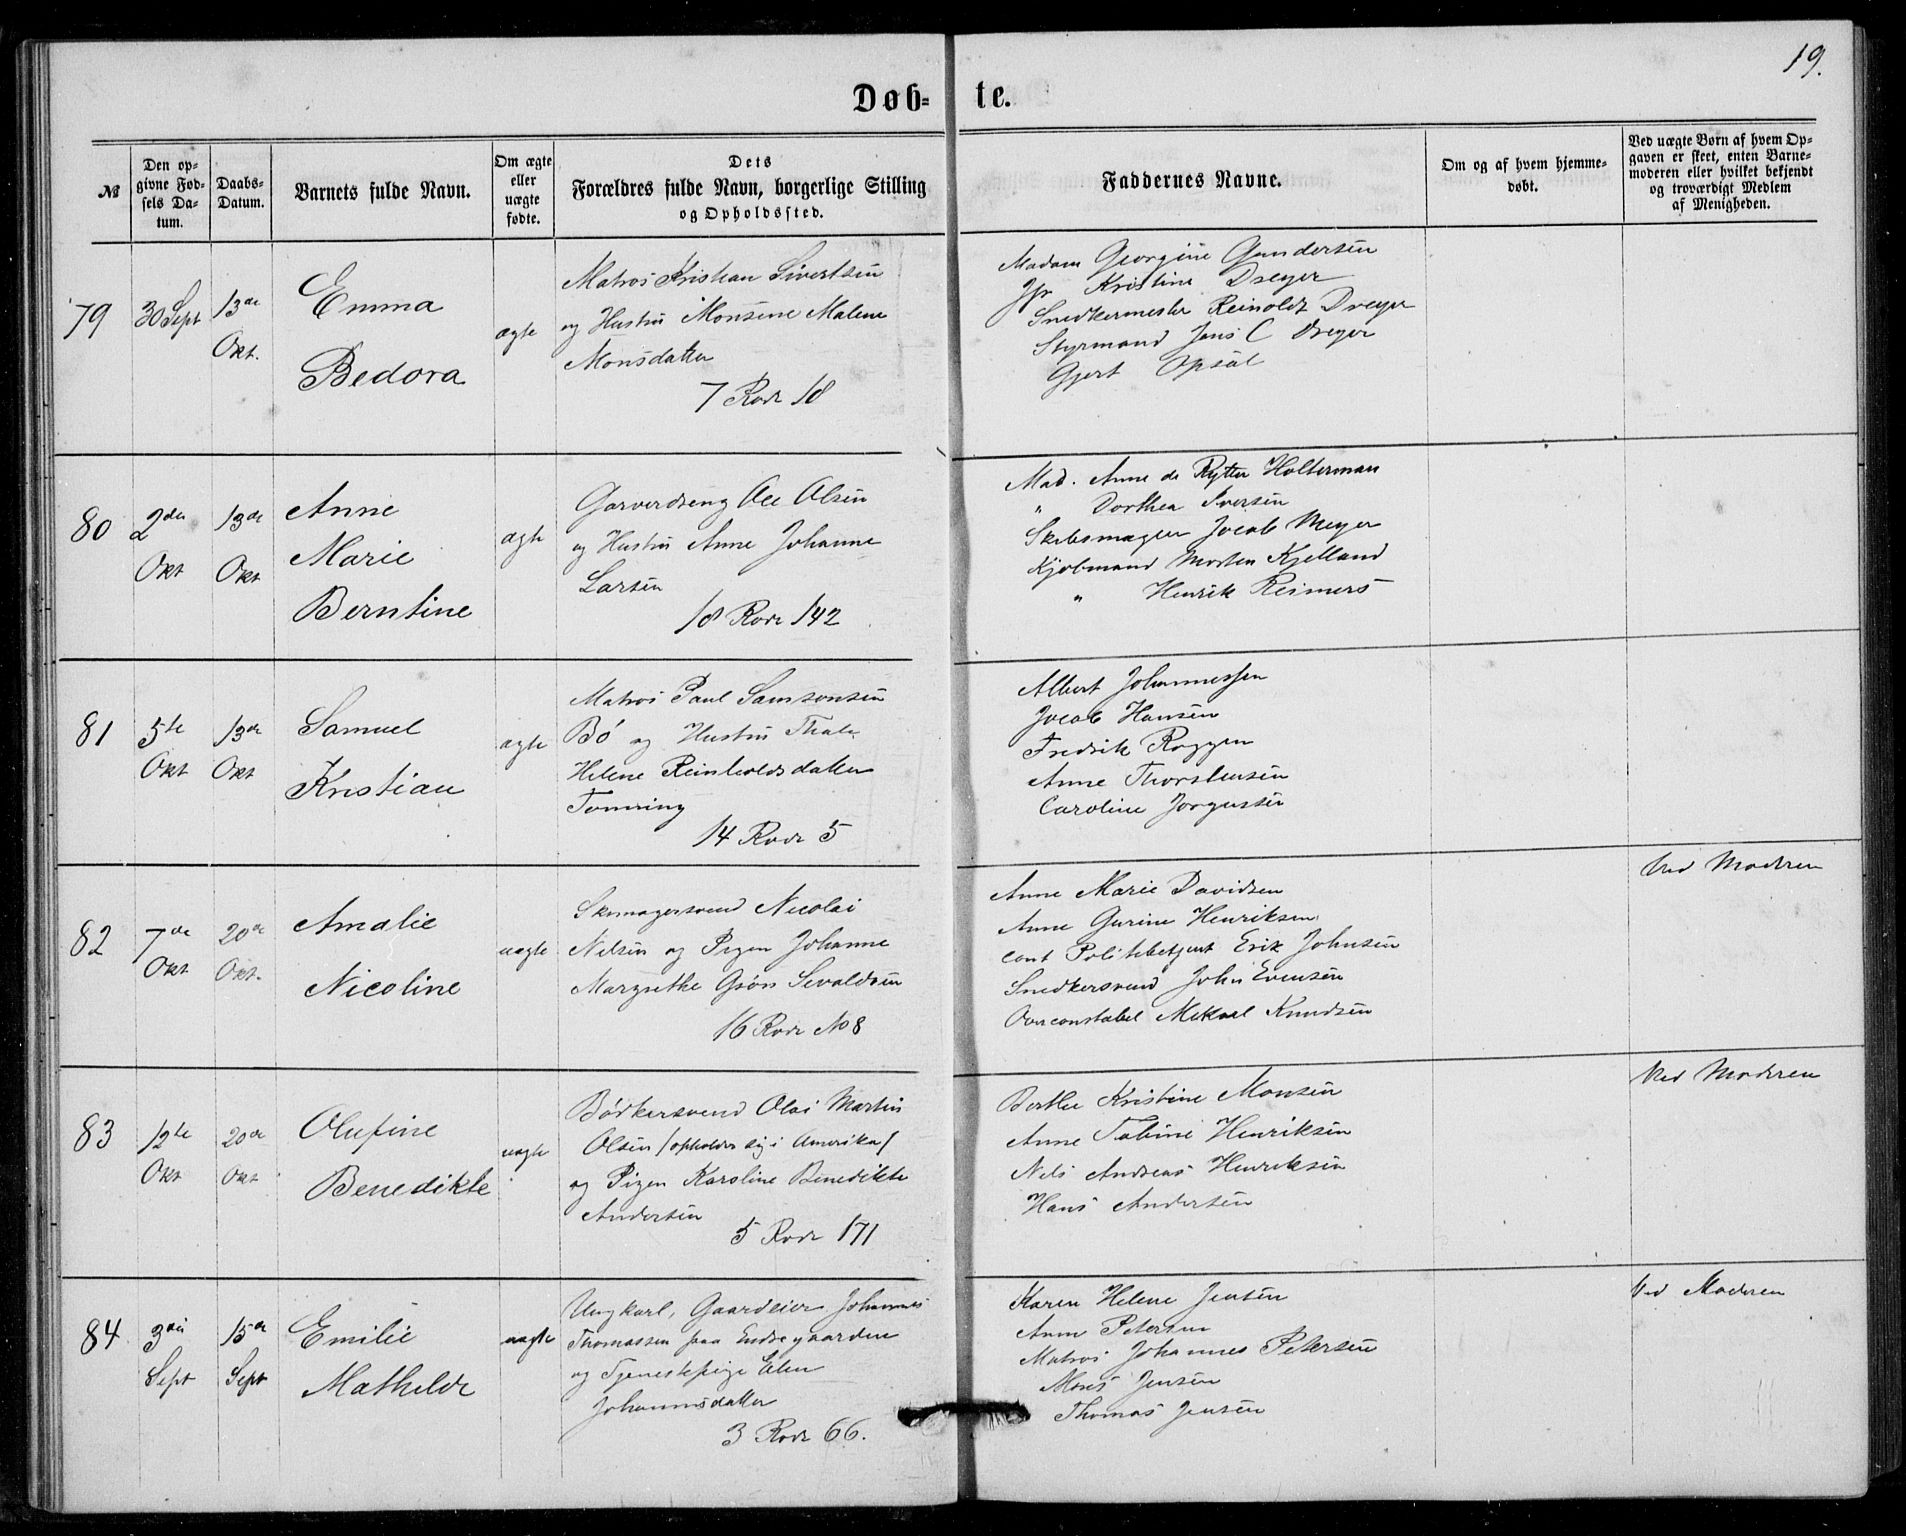 19.
Døb- te.
№
Den op-
givne Fød-
sels Da-
tum.
Daabs-
Datum.
Barnets fulde Navn.
Om ægte
eller
uægte
fødte.
Dets
Forældres fulde Navn, borgerlige Stilling
og Opholdssted.
Faddernes Navne.
Om og af hvem hjemme-
døbt.
Ved uægte Børn af hvem Op-
gaven er skeet, enten Barne-
moderen eller hvilket bekjendt
og troværdigt Medlem
af Menigheden.
79
30 Sept
13de
Okt.
Emma
Bedora
ægte
Matros Kristian Sivertsen
og Hustru Monsene Malene
Monsdatter
7 Rode 18
Madam Georgine Gundersen
Jfr Kristine Dreyer
Snedkermester Reinoldt Dreyer
Styrmand Jens C Dreyer
Gjert Opsal
80
2den
Okt
13de
Okt
Anne
Marie
Berntine
ægte
Garversveng Ole Olsen
og Hustru Anne Johanne
Larsen
18 Rode 142
Mad. Anne de Rytter Holterman
" Dorthea Iversen
Skibsmægler Jocob Meyer
Kjøbmand Morten Kjelland
" Henrik Reimers
81
5te
Okt
13de
Okt
Samuel
Kristian
ægte
Matros Paul Samsonsen
Bø og Hustru Thale
Helene Reinholdsdatter
Tonning
14 Rode 5
Albert Johannessen
Jocob Hansen
Fredrik Roggen
Anne Thorstensen
Caroline Jørgensen
82
7de
Okt
20de
Okt.
Amalie
Nicoline
uægte
Skomagersvend Nicolai
Nilsen og Pigen Johanne
Margrethe Grøn Sevaldsen
16 Rode No 8
Anne Marie Davidsen
Anne Gurine Henriksen
const Politibetjent Erik Johnsen
Snedkersvend John Evensen
Overconstabel Mikael Knudsen
Ved Moderen
83
12te
Okt
20de
Okt
Olufine
Benedikte
uægte
Bødkersvend Olai Martin
Olsen /opholder sig i Amerika/
og Pigen Karoline Benedikte
Andersen
5 Rode 171
Berthe Kristine Monsen
Anne Tobine Henriksen
Nels Andreas Henriksen
Hans Andersen
Ved Moderen
84
3die
Sept
15de
Sept
Emilie
Mathilde
uægte
Ungkarl, Gaardeier Johannes
Thomassen paa Endregaarden
og Tjenestepige Elen
Johannesdatter
3 Rode 66.
Karen Helene Jensen
Anne Petersen
Matros Johannes Petersen
Mons Jensen
Thomas Jensen
Ved Moderen